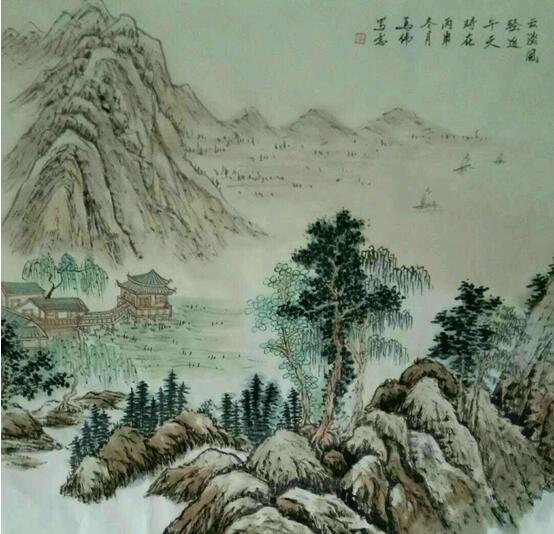 云淡風
轻近
午天
時在
丙申
冬月
马伟
写意